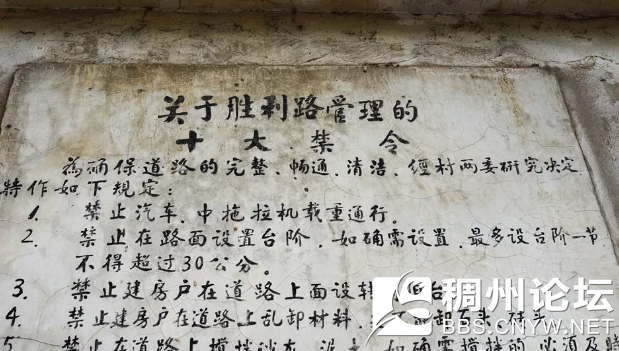 关于胜利路管理的
十大禁令
為确保道路的完整、畅通、清洁、经村两委研究决定
特作如下规定：
1. 禁止汽车、中拖拉机载重通行。
2. 禁止在路面设置台阶，如确需设置，最多设台阶一节
不得超过30公分。
3. 禁止建房户在道路上面设
4. 禁止建房户在道路上乱卸材料，
5. 禁止在道路上搅拌 如确需搅拌的必须及时
稠州论坛
BBS.CNYW.NET